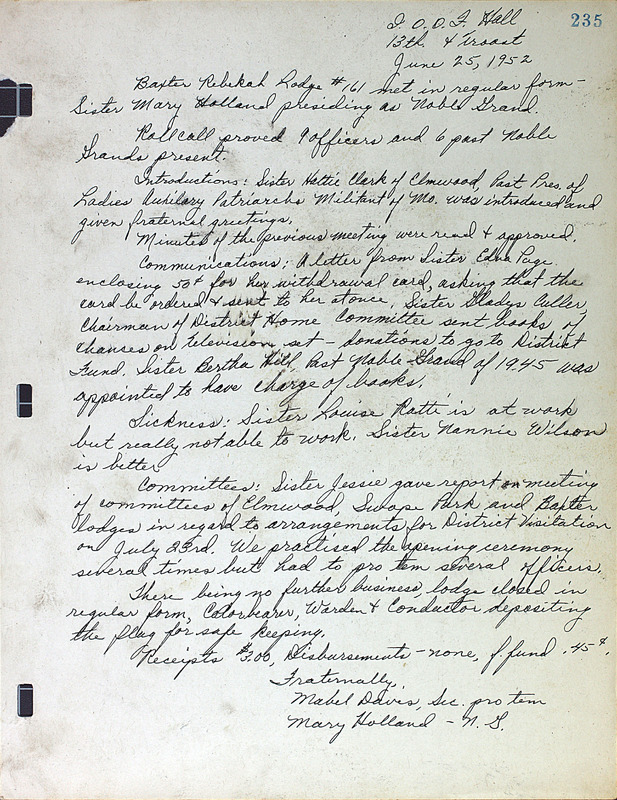 I.O.O.F. Hall 235
13th. & Troost
June 25, 1952
Baxter Rebekah Lodge #161 met in regular form -
Sister Mary Holland presiding as Noble Grand.
Roll call proved 9 officers and 6 past Noble
Grands present.
Introductions: Sister Hattie Clark of Elmwood, Past Pres. of
Ladies Auxilary Patriarchs Militant of Mo. was introduced and
given fraternal greetings.
Minutes of the previous meeting were read & approved.
Communications: A letter from Sister Edna Page
enclosing 50¢ for her withdrawal card, asking that the
card be ordered & sent to her at once. Sister Gladys Culler,
Chairman of District Home Committee sent books of
chanses on television set - donations to go to District
Fund. Sister Bertha Hill, Past Noble Grand of 1945 was
appointed to have charge of books.
Sickness: Sister Louise Ratti is at work
but really not able to work. Sister Nannie Wilson
is better
Committees: Sister Jessie gave report on meeting
of committees of Elmwood, Swope Park and Baxter
lodges in regard to arrangements for District Visitation
on July 23rd. We practised the opening ceremony
several times but had to pro tem several officers.
There being no further business lodge closed in
regular form, Colorbearer, Warden & Conductor depositing
the flag for safe keeping.
Receipts $3.00, Disbursements - none, f. fund .45¢.
Fraternally,
Mabel Davis, Sec. pro tem
Mary Holland - N. G.